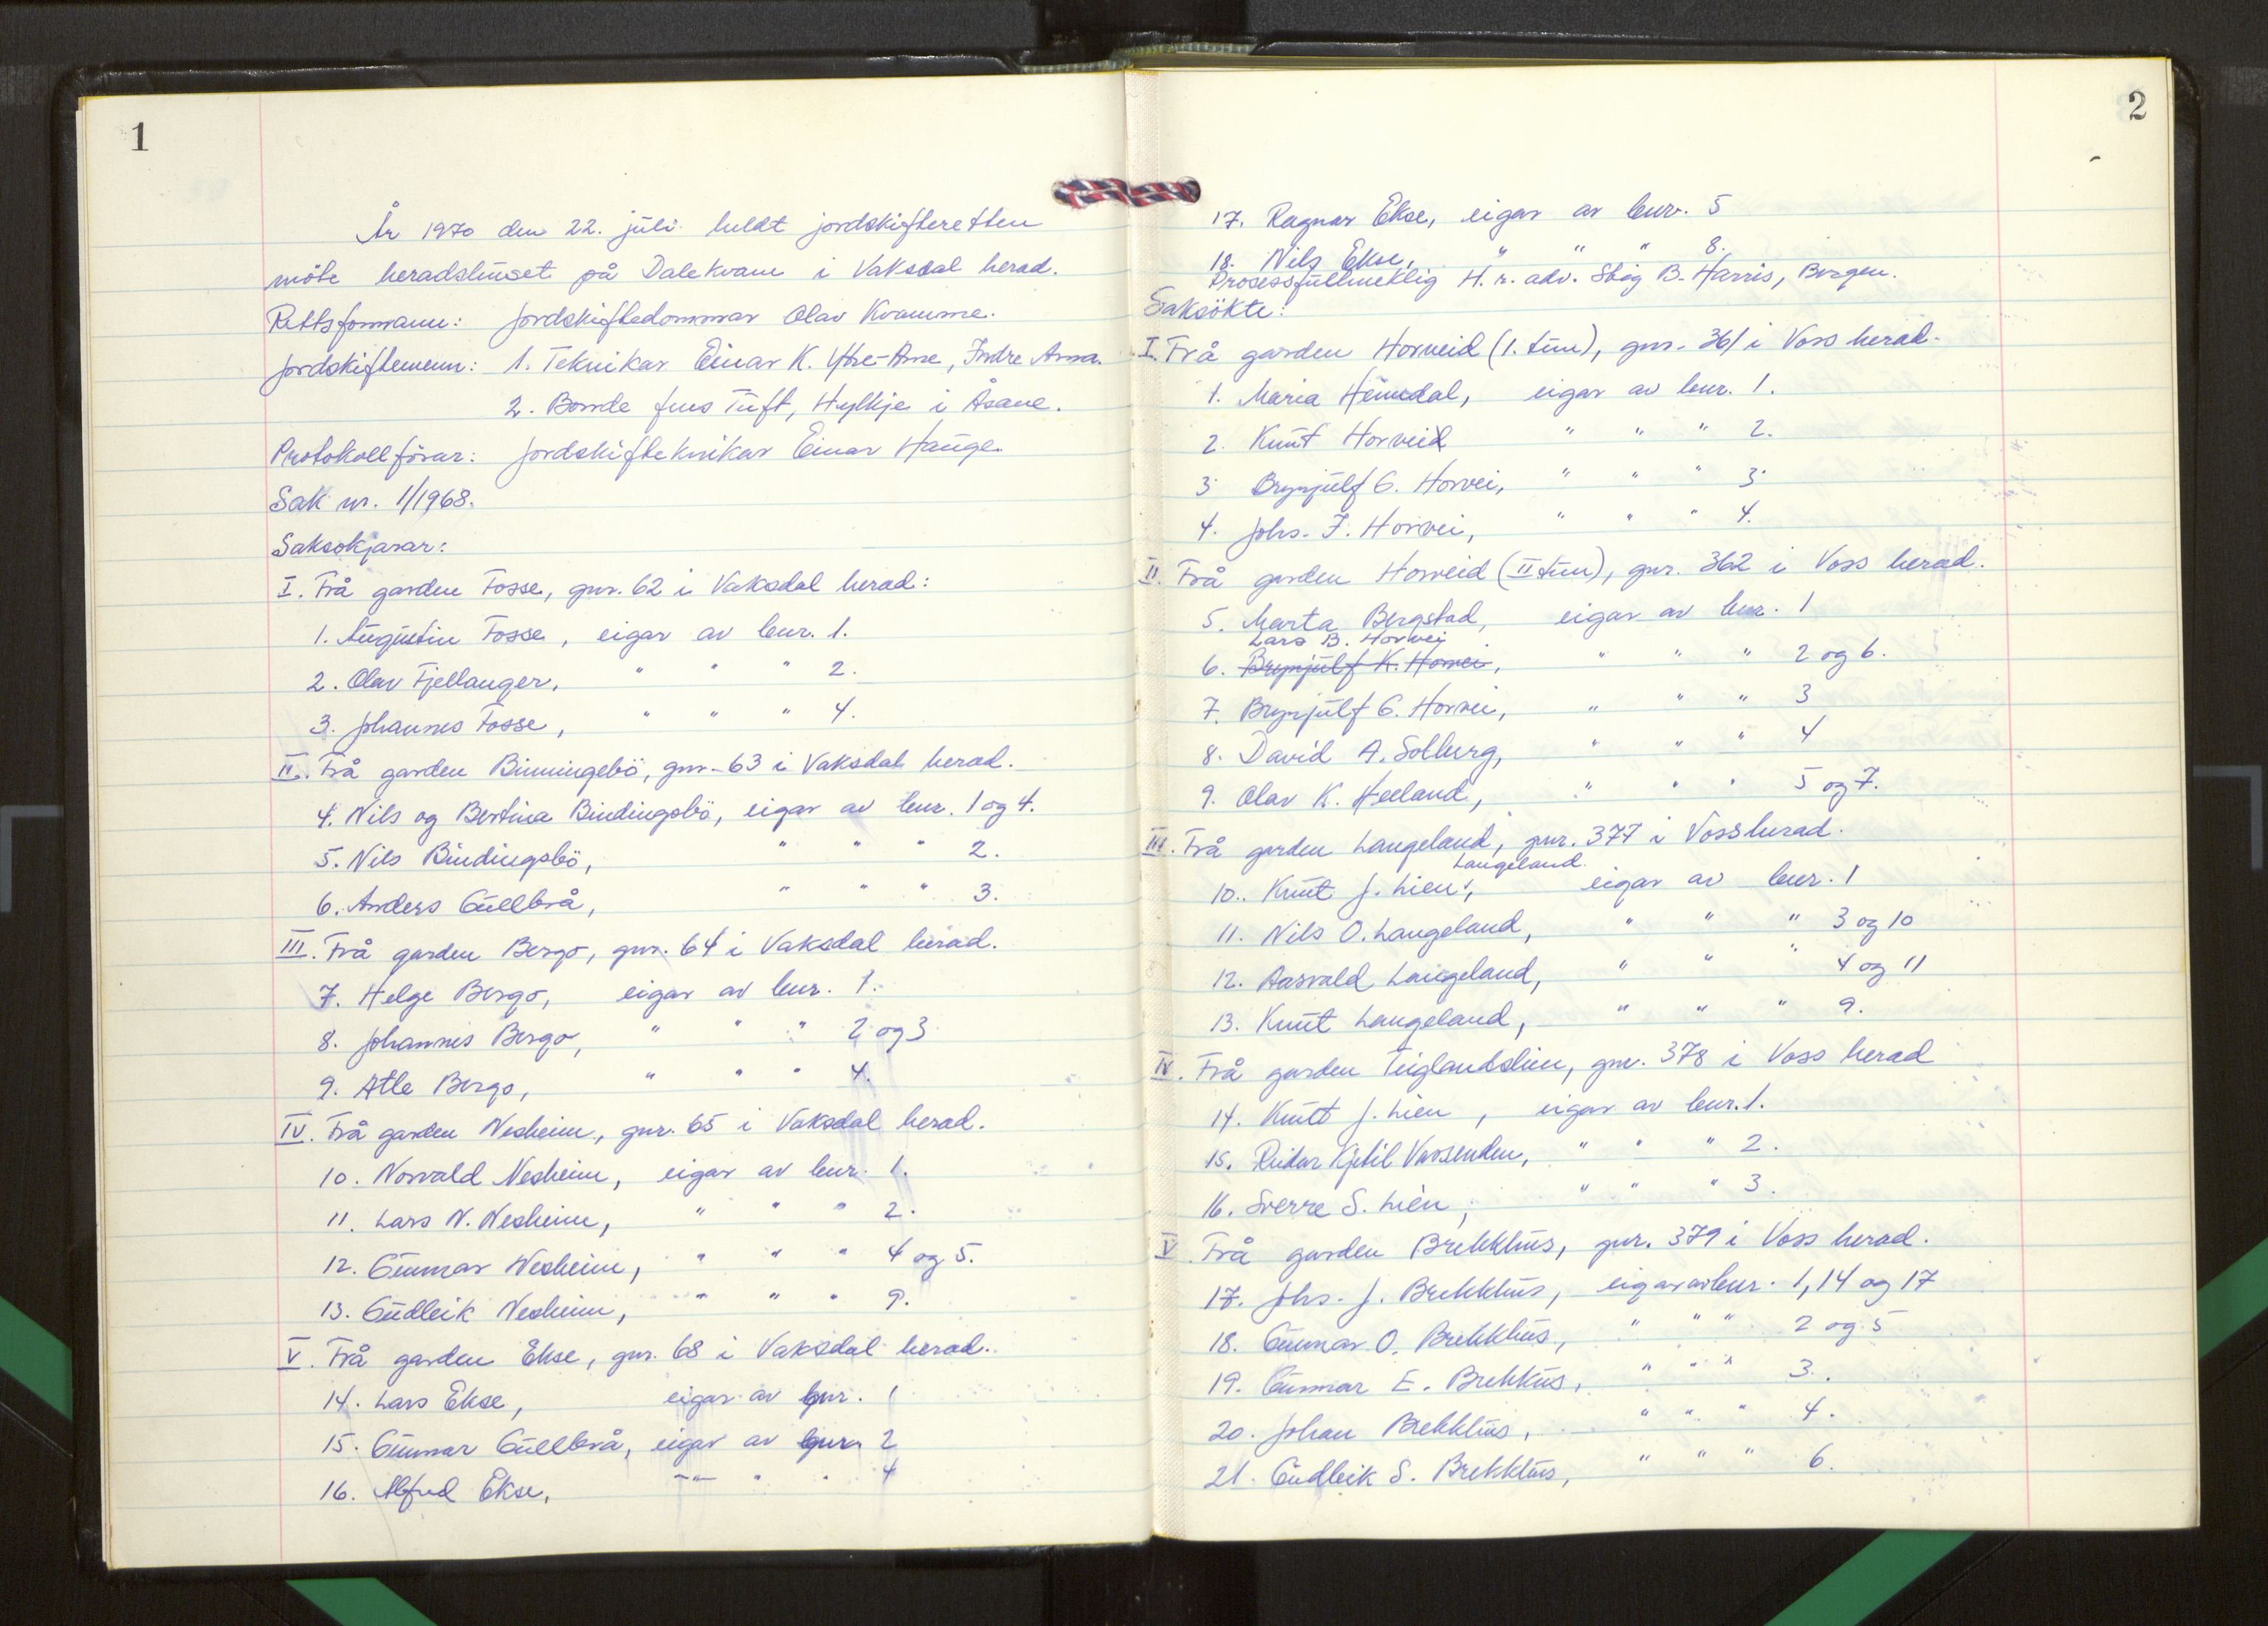 1
År 1970 den 22. juli heldt jordskifteretten
möte heradshuset på Dalekvam i Vaksdal herad.
Rettsformann: Jordskiftedommar Olav Kvamme.
Jordskiftemenn: 1. Teknikar Einar K. Ytre-Arne, Indre Arna.
2. Bonde Jens Tuft, Hylkje i Åsane.
Protokollförar: Jordskifteknikar Einar Hauge.
Sak nr. 1/1968.
Saksökjarar:
I. Frå garden Fosse, gnr. 62 i Vaksdal herad:
1. Augustin Fosse, eigar av bnr. 1.
2. Olav Fjellanger, " " " 2.
3. Johannes Fosse, " " " 4.
II. Frå garden Binningebö, gnr. 63 i Vaksdal herad.
4. Nils og Bertina Bindingsbö, eigar av bnr. 1 og 4.
5. Nils Bindingsbö, " " " 2.
6. Anders Gullbrå, " " " 3.
III. Frå garden Bergo, gnr. 64 i Vaksdal herad.
7. Helge Bergo, eigar av bnr. 1.
8. Johannes Bergo, " " " 2 og 3
9. Atle Bergo, " " " 4.
IV. Frå garden Nesheim, gnr. 65 i Vaksdal herad.
10. Norvald Nesheim, eigar av bnr. 1.
11. Lars N. Nesheim, " " " 2.
12. Gunnar Nesheim, " " " 4 og 5.
13. Gudleik Nesheim, " " " 9.
V. Frå garden Ekse, gnr. 68 i Vaksdal herad.
14. Lars Ekse, eigar av bnr. 1
15. Gunnar Gullbrå, eigar av bnr. 2
16. Alfred Ekse, -"- " " 4
2
17. Ragnar Ekse, eigar av bnr. 5
18. Nils Ekse, " " " 8.
Prosessfullmektig H.r. adv. Stig B. Harris, Bergen.
Saksökte:
I. Frå garden Horveid (1. tun), gnr. 361 i Voss herad.
1. Maria Heimdal, eigar av bnr. 1.
2. Knut Horveid " " " 2.
3 Brynjulf G. Horvei, " " " 3
4. Johs. I. Horvei, " " " 4.
II. Frå garden Horveid (II tun), gnr. 362 i Voss herad.
5. Marta Bergstad, eigar av bnr. 1
Lars B. Horvei
6. Brynjulf K. Horvei, " " " 2 og 6.
7. Brynjulf G. Horvei, " " " 3
8. David A. Solberg, " " " 4
9. Olav K. Helland, " " " 5 og 7.
III. Frå garden Langeland, gnr. 377 i Voss herad.
Langeland
10. Knut J. Lien, eigar av bnr. 1
11. Nils O. Langeland, " " " 3 og 10
12. Aasvald Langeland, " " " 4 og 11
13. Knut Langeland, " " " 9.
IV. Frå garden Teiglandslien, gnr. 378 i Voss herad
14. Knut J. Lien, eigar av bnr. 1.
15. Reidar Kjetil Vassenden, " " " 2.
16. Sverre S. Lien, " " " 3.
V Frå garden Brekkhus, gnr. 379 i Voss herad.
17. Johs. J. Brekkhus, eigar av bnr. 1, 14 og 17
18. Gunnar O. Brekkhus, " " " 2 og 5
19. Gunnar E. Brekkus, " " " 3.
20. Johan Brekkhus, " " " 4.
21. Gudleik S. Brekkhus, " " " 6.